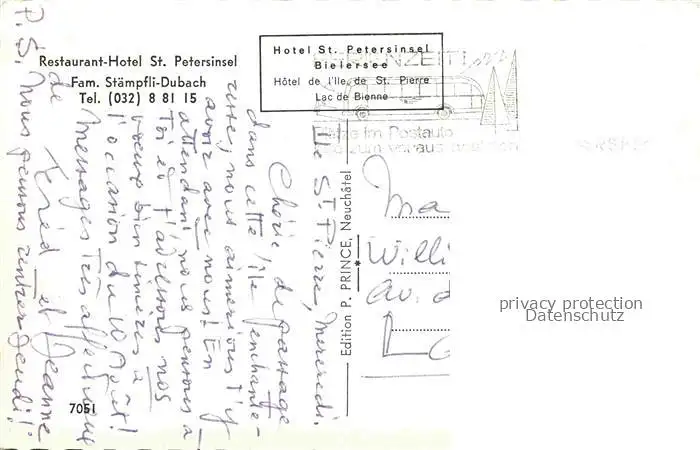 Restaurant-Hotel St. Petersinsel
Fam. Stämpfli-Dubach
Tel. (032) 8 81 15
Hotel St. Petersinsel
Bielersee
Hôtel de l'Ile de St. Pierre
Lac de Bienne
FERIENZEIT!
im Postauto
zum voraus
Ile St Pierre, Mercredi.
Chérie, de passage
dans cette île enchante-
resse, nous aimerions t'y
avoir avec nous! En
attendant, nous pensons à
Toi et t'adressons nos
voeux bien sincères à
l'occasion du 10 Août!
Messages très affectueux
de Fred et Jeanne
P.S. Nous pensons rentrer jeudi!
Edition P. PRINCE, Neuchâtel
Ma
Willi
av. d
7051
privacy protection
Datenschutz